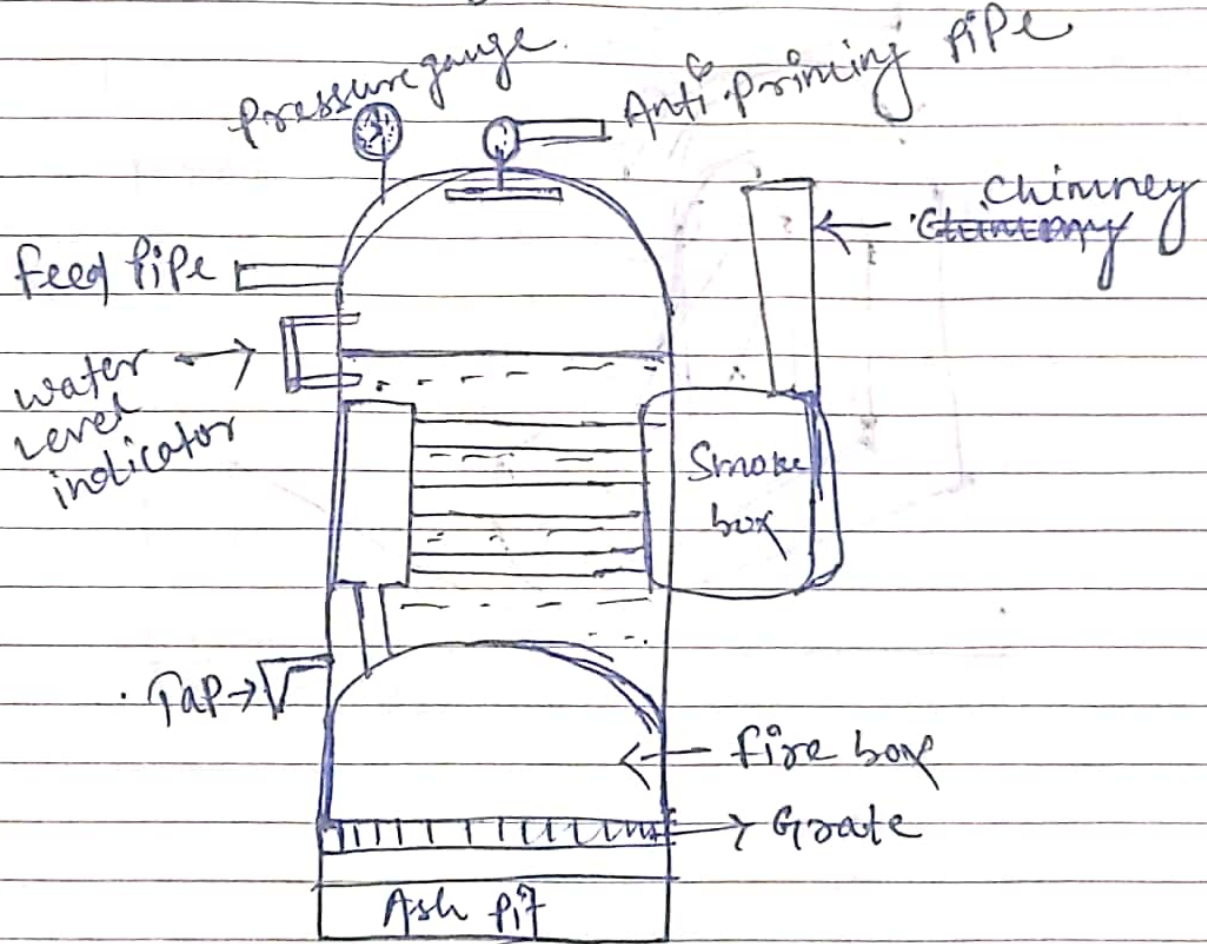 Pressure gauge
Anti priming pipe
Chimney
Feed pipe
water
level
indicator
Smoke
box
Tap
fire box
Grate
Ash pit